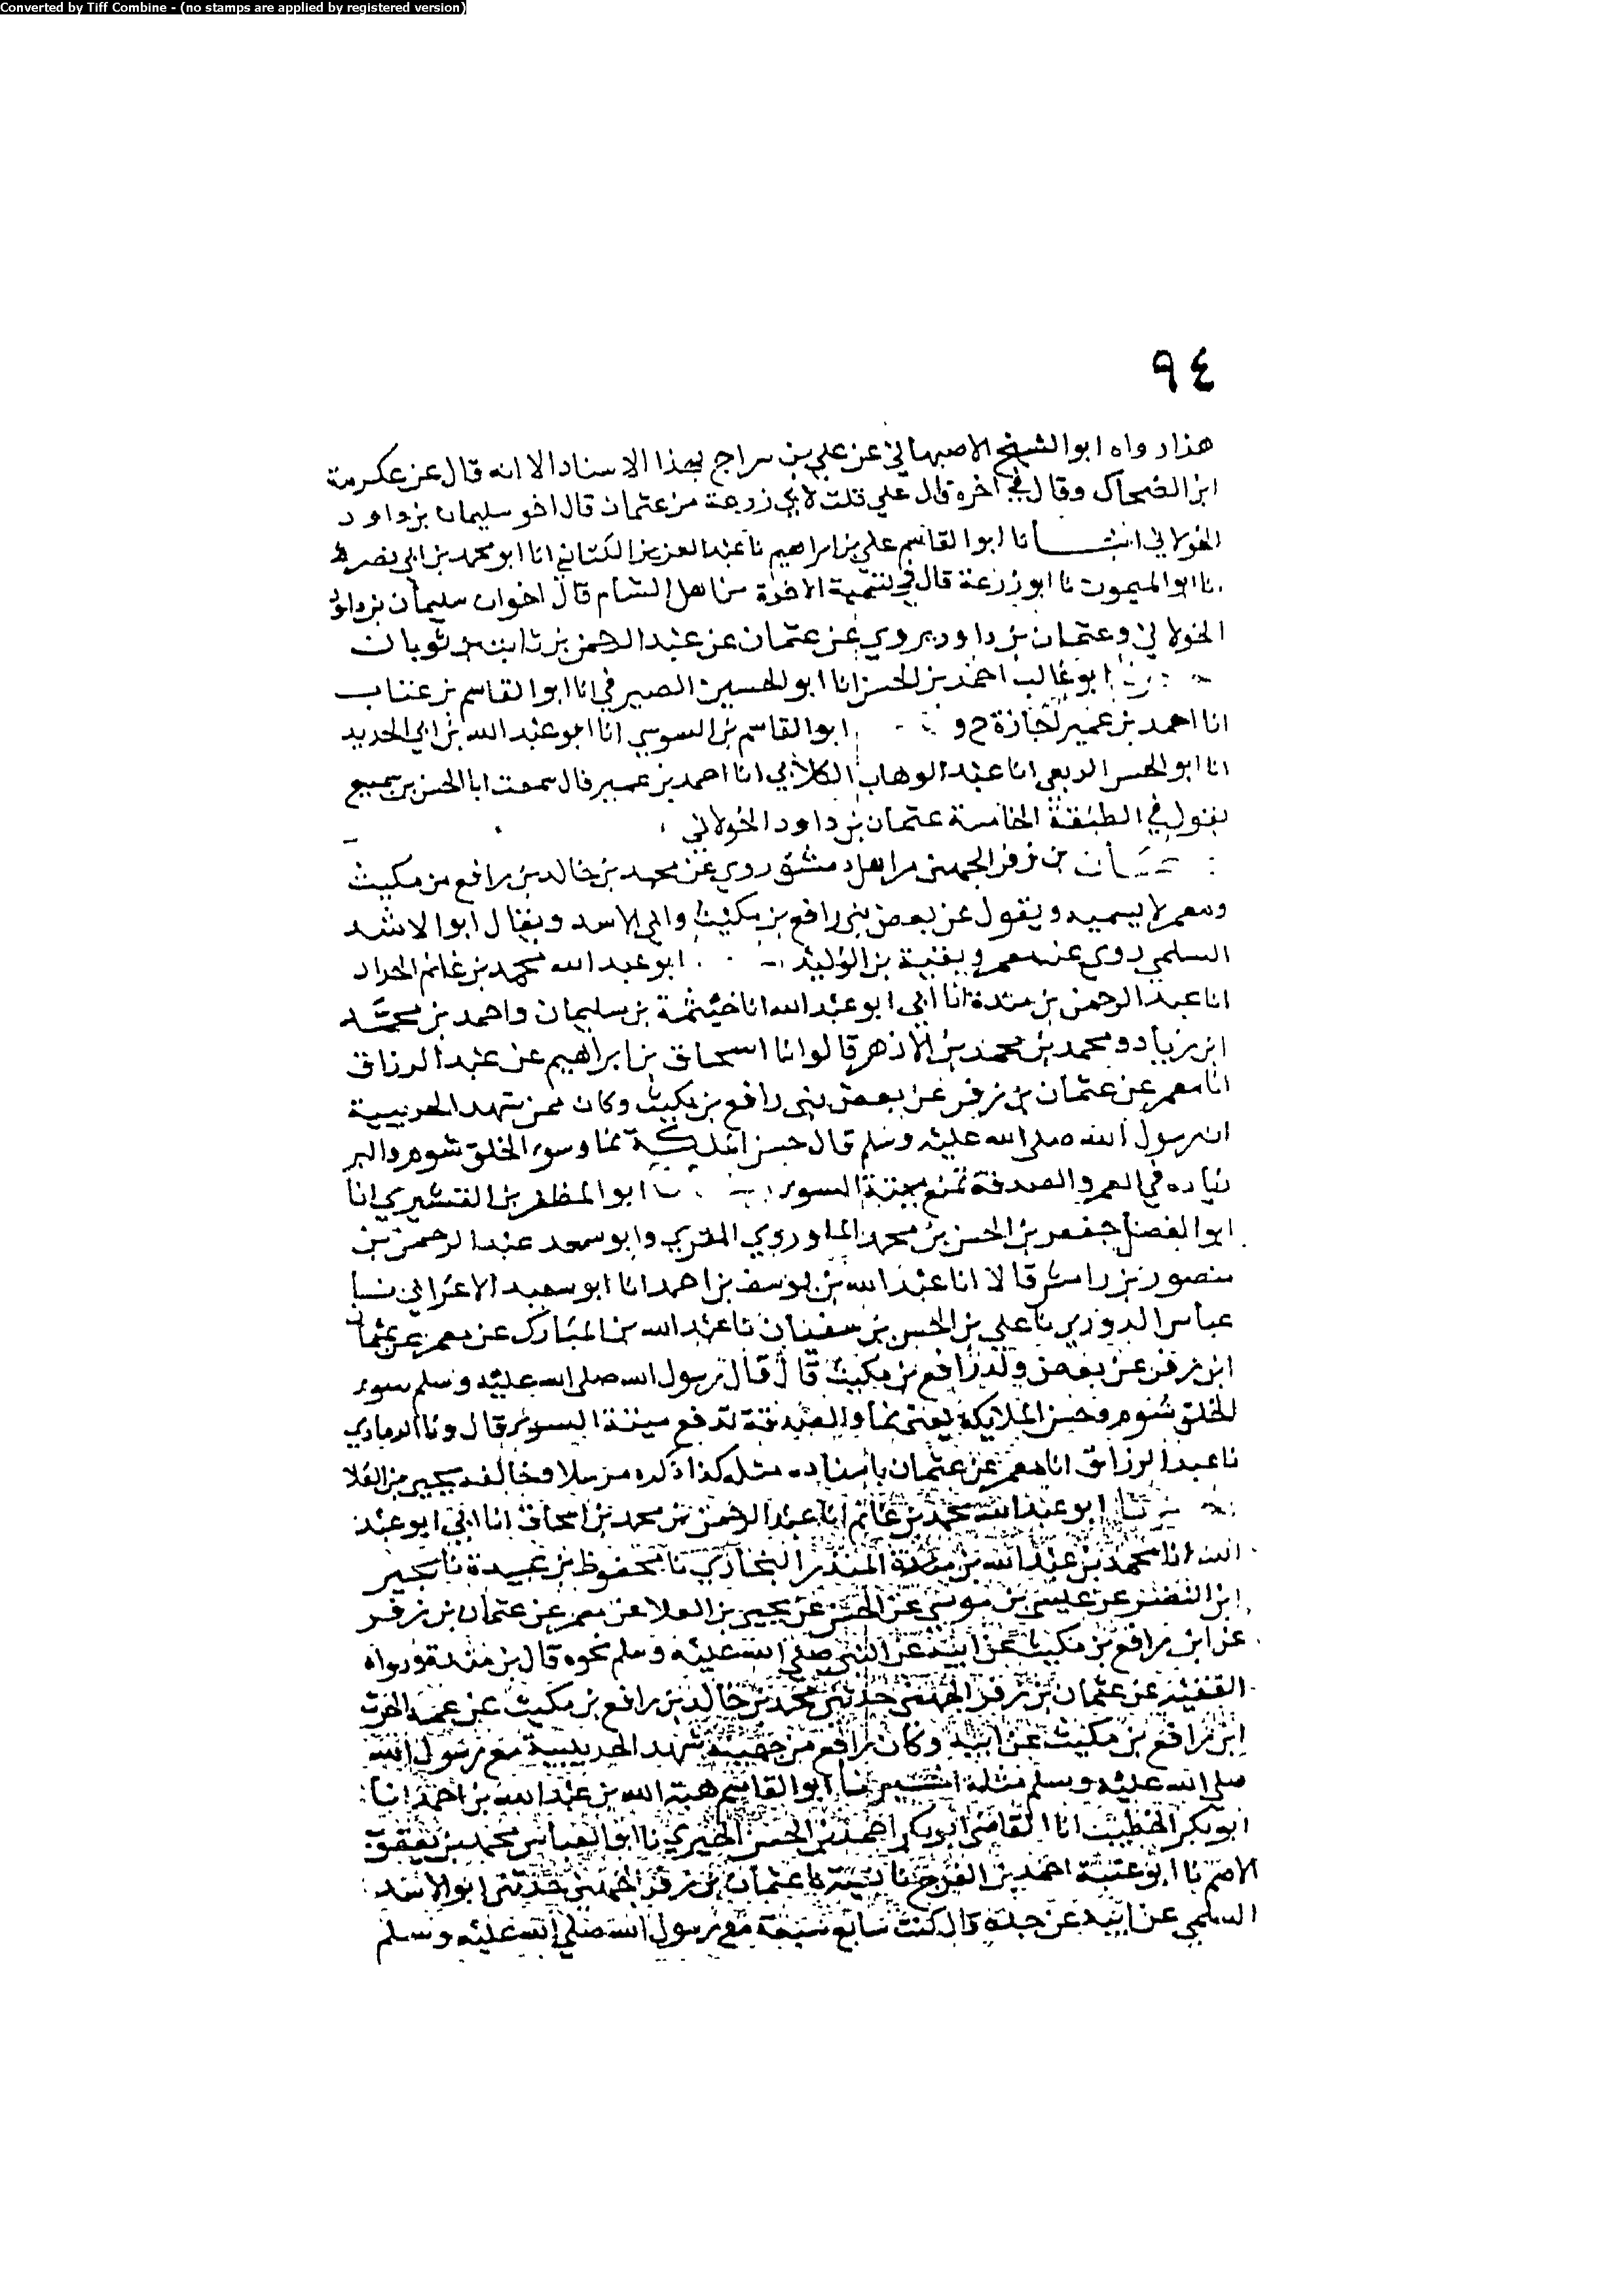 Converted by Tiff Combine - (no stamps are applied by registered version)
٩٤
هذا رواه ابو الشيخ الاصبهاني عن علي بن سراج بهذا الاسناد الا انه قال عن عكرمة
ابن الضحاك وقال في اخره قال علي قلت لابي زرعة من عثمان قال اخو سليمان بن داود
الخولاني انبـــأنا ابو القاسم علي بن ابراهيم نا عبد العزيز الكتاني انا ابو محمد بن ابي نصر
نا ابو الميمون نا ابو زرعة قال في تسمية الاخوة من اهل الشام قال اخوان سليمان بن داود
الخولاني وعثمان بن داود يروي عن عثمان عن عبد الرحمن بن ثابت بن ثوبان
ابو غالب احمد بن الحسن انا ابو الحسين الصيرفي انا ابو القاسم بن عتاب
انا احمد بن عمير اجازة ح و ابو القاسم بن السوسي انا ابو عبد الله بن ابي الحديد
انا ابو الحسن الربعي انا عبد الوهاب الكلابي انا احمد بن عمير قال سمعت ابا الحسن بن سميع
يقول في الطبقة الخامسة عثمان بن داود الخولاني
عثمان بن زفر الجهني من اهل دمشق روى عن محمد بن خالد بن رافع بن مكيث
ومعمر لا يسميه ويقول عن بعض بني رافع بن مكيث وابي الاسد ويقال ابو الاشد
السلمي روى عنه معمر وبقية بن الوليد ابو عبد الله محمد بن غانم الحداد
انا عبد الرحمن بن مندة انا ابي ابو عبد الله انا خيثمة بن سليمان واحمد بن محمد
ابن زياد ومحمد بن محمد بن الازهر قالوا انا اسحاق بن ابراهيم عن عبد الرزاق
انا معمر عن عثمان بن زفر عن بعض بني رافع بن مكيث وكان ممن شهد الحديبية
ان رسول الله صلى الله عليه وسلم قال حسن الملكة نما وسوء الخلق شوم والبر
زياده في العمر والصدقة تمنع ميتة السوء ابو المظفر بن القشيري انا
ابو الفضل جعفر بن الحسن بن محمد الماوردي المقري وابو سعد عبد الرحمن بن
منصور بن رامش قالا انا عبد الله بن يوسف بن احمد انا ابو سعيد الاعرابي نا
عباس الدوري نا علي بن الحسن بن سفيان نا عبد الله بن المبارك عن معمر عن عثمان
ابن زفر عن بعض ولد رافع بن مكيث قال قال رسول الله صلى الله عليه وسلم سوء
الخلق شوم وحسن الملايكة يعني نما والصدقة تدفع ميتة السوء قال ونا الرمادي
نا عبد الرزاق انا معمر عن عثمان باسناده مثله كذا ذكره مرسلا وخالفه بجير بن العلا
ابو عبد الله محمد بن غانم انا عبد الرحمن بن محمد بن اسحاق انا ابي ابو عبد
الله انا محمد بن عبد الله بن المنذر البخاري نا محفوظ بن عبيدة نا بجير
ابن النضر عن عيسى بن موسى عن الحسن عن بجير بن العلا عن معمر عن عثمان بن زفر
عن ابن رافع بن مكيث عن ابيه عن النبي صلى الله عليه وسلم نحوه قال بن مندة ورواه
عن عثمان بن زفر الجهني حدثني محمد بن خالد بن رافع بن مكيث عن عمه الحرث
ابن رافع بن مكيث عن ابيه وكان رافع من جهينة شهد الحديبية مع رسول الله
صلى الله عليه وسلم مثله ابو القاسم هبة الله بن عبد الله بن احمد انا
ابو بكر الخطيب انا القاضي ابو بكر احمد بن الحسن الحيري نا ابو العباس محمد بن يعقوب
الاصم نا ابو عتبة احمد بن الفرج نا بقية نا عثمان بن زفر الجهني حدثني ابو الاسد
السلمي عن ابيه عن جده قال كنت سابع سبعة مع رسول الله صلى الله عليه وسلم